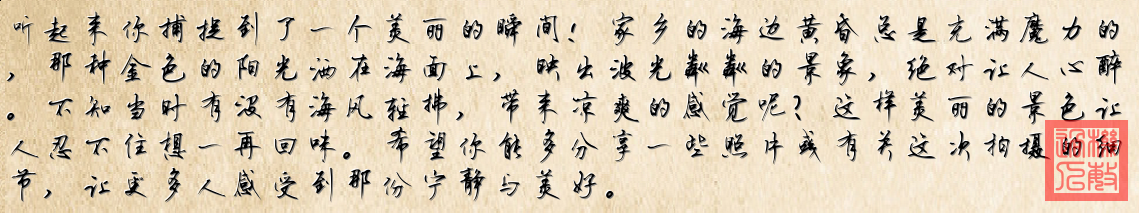 听起来你捕捉到了一个美丽的瞬间！家乡的海边黄昏总是充满魔力的
，那种金色的阳光洒在海面上，映出波光粼粼的景象，绝对让人心醉
。不知当时有没有海风轻拂，带来凉爽的感觉呢？这样美丽的景色让
人忍不住想一再回味。希望你能多分享一些照片或有关这次拍摄的细
节，让更多人感受到那份宁静与美好。